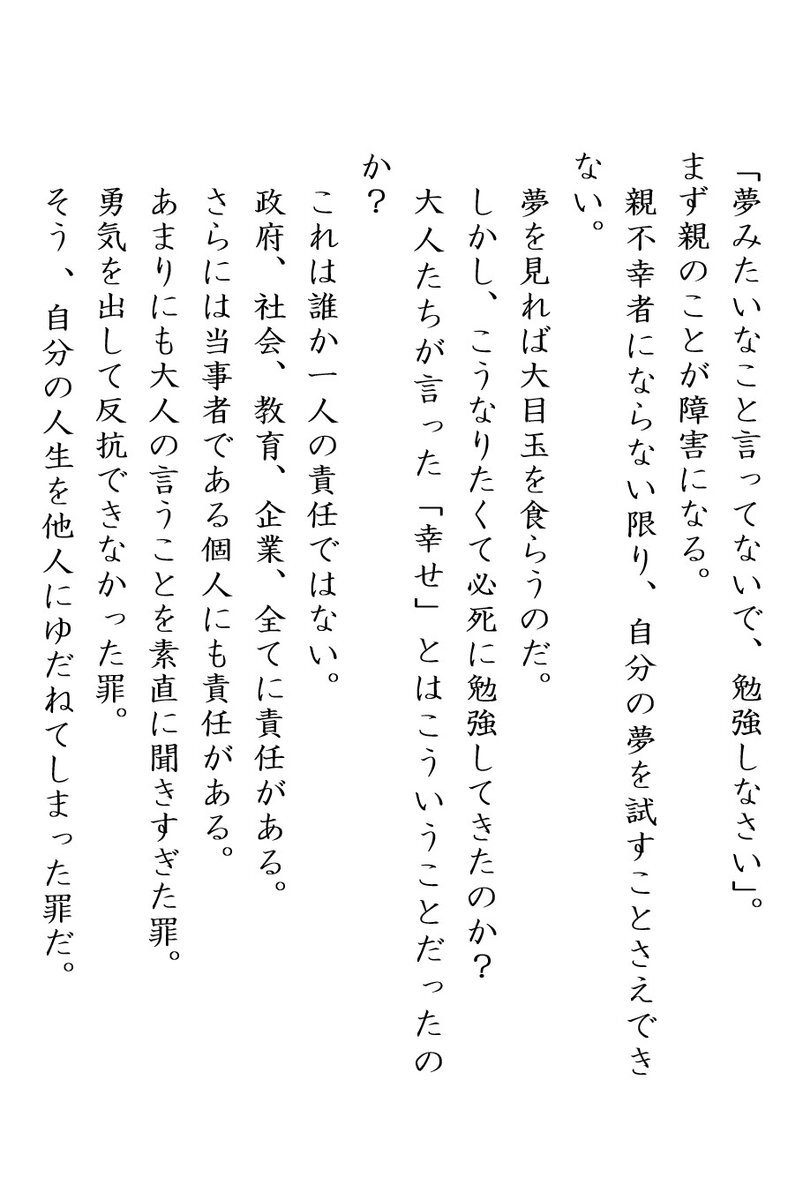 「夢みたいなこと言ってないで、勉強しなさい」。
まず親のことが障害になる。
親不幸者にならない限り、自分の夢を試すことさえでき
ない。
夢を見れば大目玉を食らうのだ。
しかし、こうなりたくて必死に勉強してきたのか？
大人たちが言った「幸せ」とはこういうことだったの
か？
これは誰か一人の責任ではない。
政府、社会、教育、企業、全てに責任がある。
さらには当事者である個人にも責任がある。
あまりにも大人の言うことを素直に聞きすぎた罪。
勇気を出して反抗できなかった罪。
そう、自分の人生を他人にゆだねてしまった罪だ。